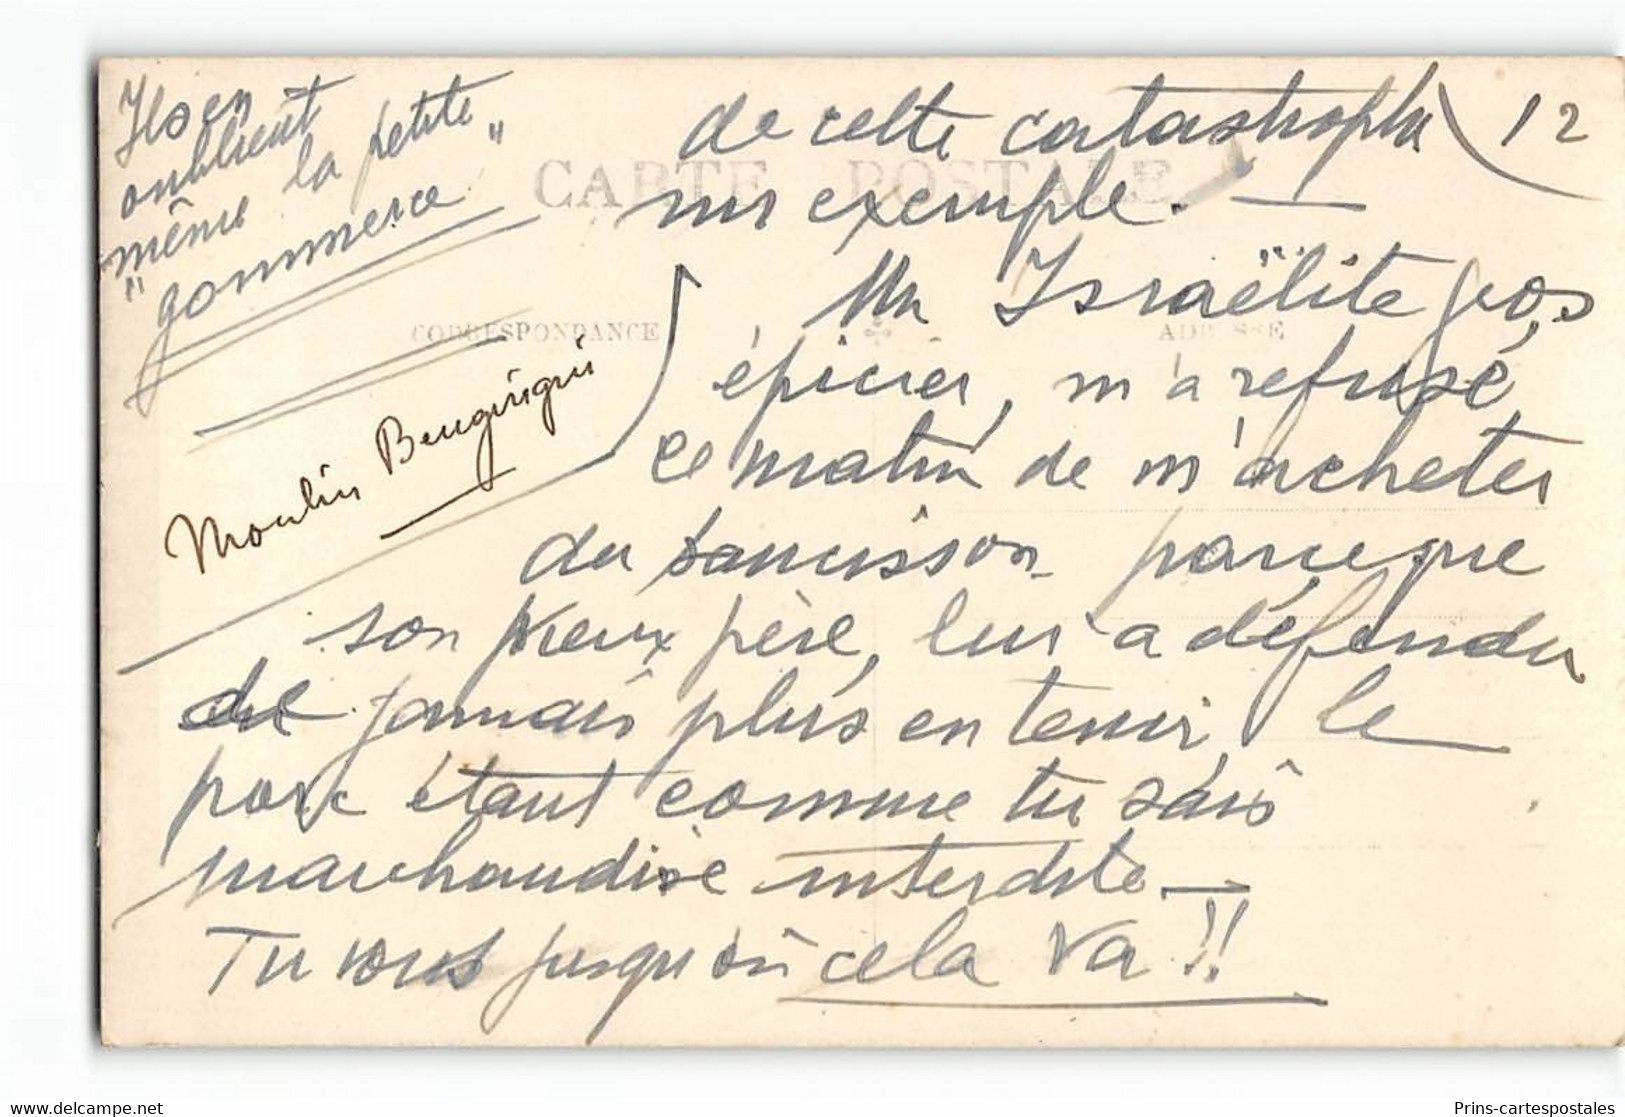 Ils en
oublient
même la petite
"gommerce"
de cette catastrophe 12
un exemple. —
CARTE POSTALE
Un Israëlite gros
CORRESPONDANCE
ADRESSE
épicier, m'a refusé
Moulin
ce matin de m'acheter
du saucisson parceque
son pieux père, lui a défendu
de jamais plus en tenir, le
porc étant comme tu sais
marchandise interdite —
Tu vois jusqu'où cela va !!
delcampe.net
Prins-cartespostales